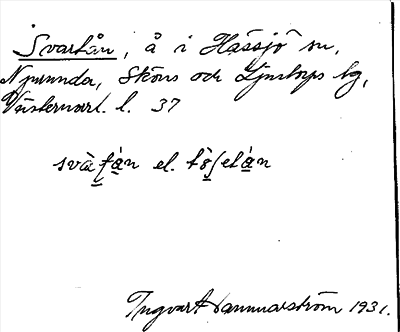 Svartån, å i Hässjö sn,
Njurunda, Sköns och Ljustorps tg,
Västernorrl. l. 37
svàfán el. tö̀ʃelán
Ingvart Hammarström 1931.